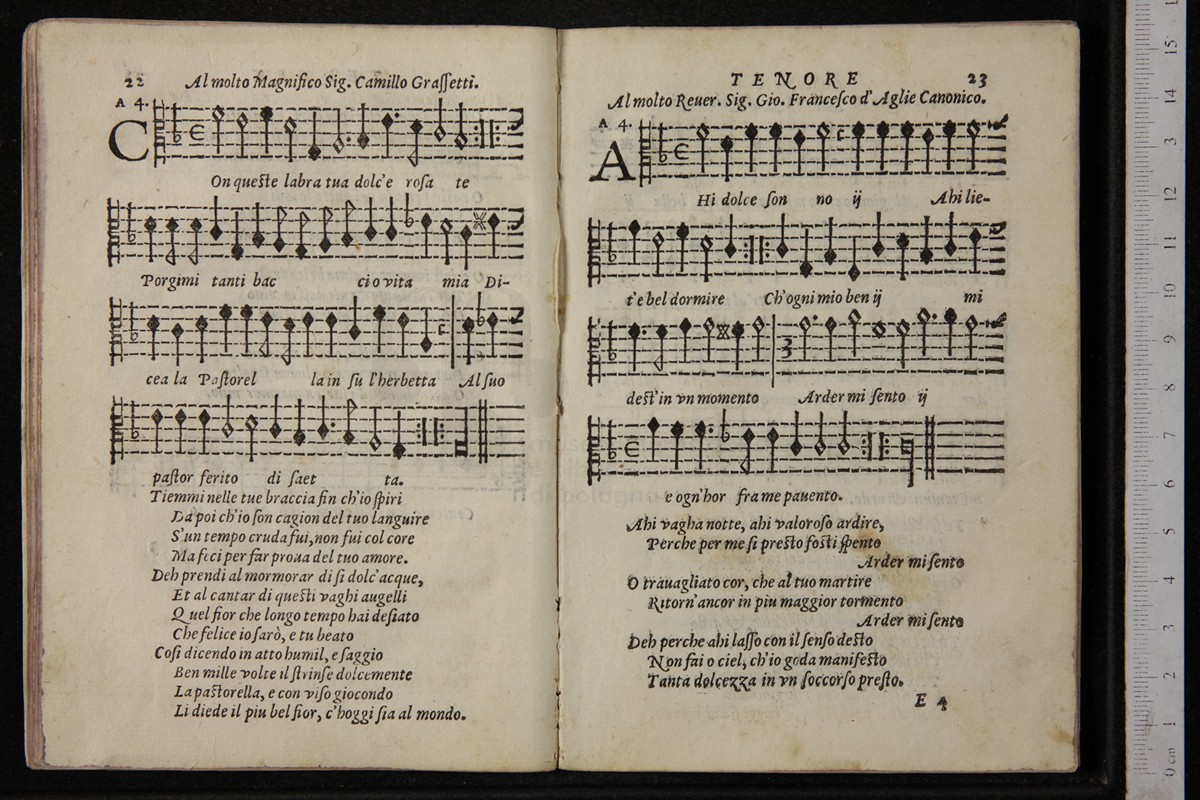 22 Al molto Magnifico Sig. Camillo Graſſetti.
A 4.
COn queſte labra tua dolc'e roſa te
Porgimi tanti bac ci o vita mia Di-
cea la Paſtorel la in ſu l'herbetta Al ſuo
paſtor ferito di ſaet ta.
Tiemmi nelle tue braccia fin ch'io ſpiri
Da poi ch'io ſon cagion del tuo languire
S'un tempo cruda fui, non fui col core
Ma feci per far proua del tuo amore.
Deh prendi al mormorar di ſi dolc'acque,
Et al cantar di queſti vaghi augelli
Quel fior che longo tempo hai deſiato
Che felice io ſarò, e tu beato
Coſi dicendo in atto humil, e ſaggio
Ben mille volte il ſtrinſe dolcemente
La paſtorella, e con viſo giocondo
Li diede il piu bel fior, c'hoggi ſia al mondo.
TENORE 23
Al molto Reuer. Sig. Gio. Franceſco d'Aglie Canonico.
A 4.
AHi dolce ſon no ij Ahi lie-
t'e bel dormire Ch'ogni mio ben ij mi
deſt'in vn momento Arder mi ſento ij
3
e ogn'hor fra me pauento.
Ahi vagha notte, ahi valoroſo ardire,
Perche per me ſi preſto foſti ſpento
Arder mi ſento
O trauagliato cor, che al tuo martire
Ritorn'ancor in piu maggior tormento
Arder mi ſento
Deh perche ahi laſſo con il ſenſo deſto
Non fai o ciel, ch'io goda manifeſto
Tanta dolcezza in vn ſoccorſo preſto.
E 4
0 cm 1 2 3 4 5 6 7 8 9 10 11 12 13 14 15